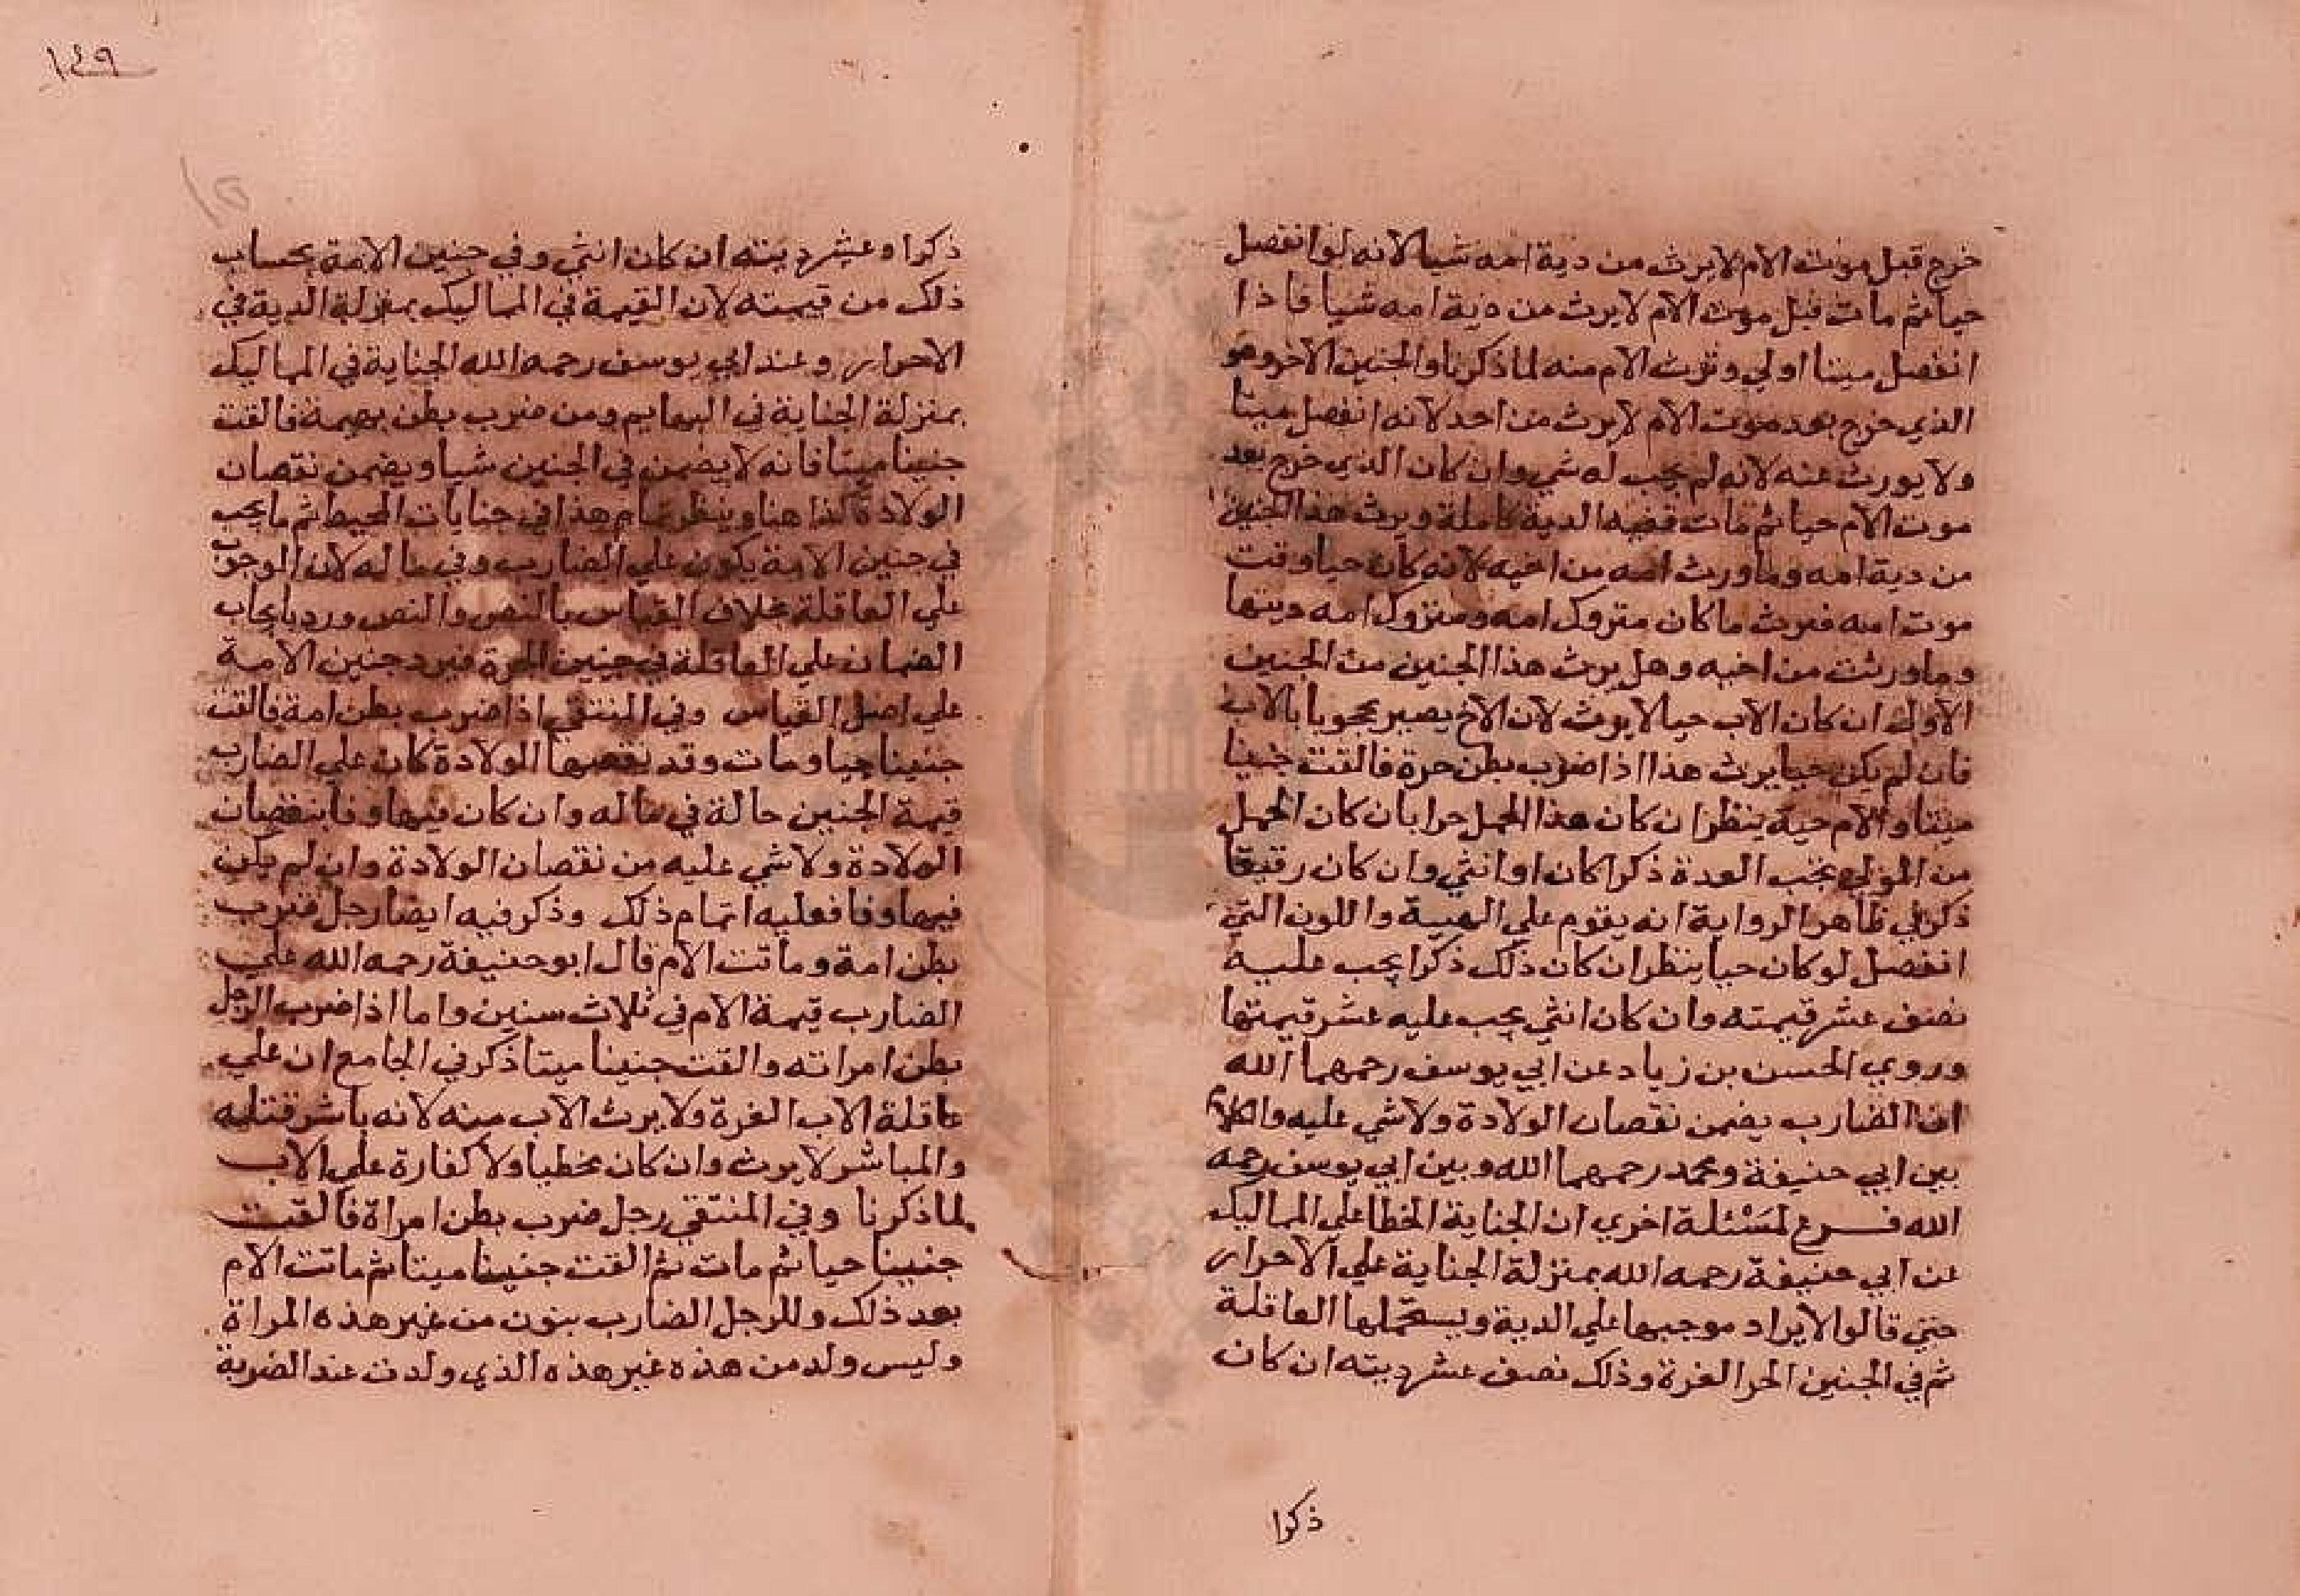 خرج قبل موت الام لا يرث من دية امه شيا لانه لوانفصل
حيا ثم مات قبل موت الام لا يرث من دية امه شيا فاذا
انفصل ميتا اولي وترث الام منه لما ذكرنا والجنين الاخر وهو
الذي خرج بعد موت الام لا يرث من احد لانه انفصل ميتا
ولا يورث عنه لانه لم يجب له شي وان كان الذي خرج بعد
موت الام حيا ثم مات ففيه الدية كاملة ويرث هذا الجنين
من دية امه وما ورث امه من اخيه لانه كان حيا وقت
موت امه فيرث ما كان متروك امه ومتروك امه ديتها
وما ورثت من اخيه وهل يرث هذا الجنين من الجنين
الاول ان كان الاب حيا لا يرث لان الاخ يصير محجوبا بالاب
فان لم يكن حيا يرث هذا اذا ضرب بطن حرة فالقت جنينا
ميتا والام حية ينظر ان كان هذا الحمل حرا بان كان الحمل
من المولي تجب الغرة ذكرا كان او انثي وان كان رقيقا
ذكر في ظاهر الرواية انه يقوم علي الهيية واللون التي
انفصل لو كان حيا ينظر ان كان ذلك ذكرا يجب عليه
نصف عشر قيمته وان كان انثي يجب عليه عشر قيمتها
وروي الحسن بن زياد عن ابي يوسف رحمهما الله
ان الضارب يضمن نقصان الولادة ولا شي عليه والكلام
بين ابي حنيفة ومحمد رحمهما الله وبين ابي يوسف رحمه
الله فرع لمسئلة اخري ان الجناية الخطا علي المماليك
عن ابي حنيفة رحمه الله بمنزلة الجناية علي الاحرار
حتي قالوا لا يراد موجبها علي الدية ويستحملها العاقلة
ثم في الجنين الحر الغرة وذلك نصف عشر ديته ان كان
ذكرا
١٤٩
ذكرا وعشر ديته ان كان انثي وفي جنين الامة بحساب
ذلك من قيمته لان القيمة في المماليك بمنزلة الدية في
الاحرار وعند ابي يوسف رحمه الله الجناية في المماليك
بمنزلة الجناية في البهايم ومن ضرب بطن بهيمة فالقت
جنينا ميتا فانه لا يضمن في الجنين شيا ويضمن نقصان
الولادة كذا هنا وينظر تمام هذا في جنايات المحيط ثم ما يجب
في جنين الامة يكون علي الضارب وفي ماله لان الوجوب
علي العاقلة بخلاف القياس بالنص والنص ورد بايجاب
الضمان علي العاقلة في جنين الحرة فيرد جنين الامة
علي اصل القياس وفي المنتقي اذا ضرب بطن امة فالقت
جنينا حيا ومات وقد نقصها الولادة كان علي الضارب
قيمة الجنين حالة في ماله وان كان فيها وفا بنقصان
الولادة ولا شي عليه من نقصان الولادة وان لم يكن
فيها وفا فعليه اتمام ذلك وذكر فيه ايضا رجل ضرب
بطن امة وماتت الام قال ابو حنيفة رحمه الله علي
الضارب قيمة الام في ثلاث سنين واما اذا ضرب الرجل
بطن امراته والقت جنينا ميتا ذكر في الجامع ان علي
عاقلة الاب الغرة ولا يرث الاب منه لانه باشر قتله
والمباشر لا يرث وان كان مخطيا ولا كفارة علي الاب
لما ذكرنا وفي المنتقي رجل ضرب بطن امراة فالقت
جنينا حيا ثم مات ثم القت جنينا ميتا ثم ماتت الام
بعد ذلك وللرجل الضارب بنون من غير هذه المراة
وليس ولد من هذه غير هذه الذي ولدت عند الضربة